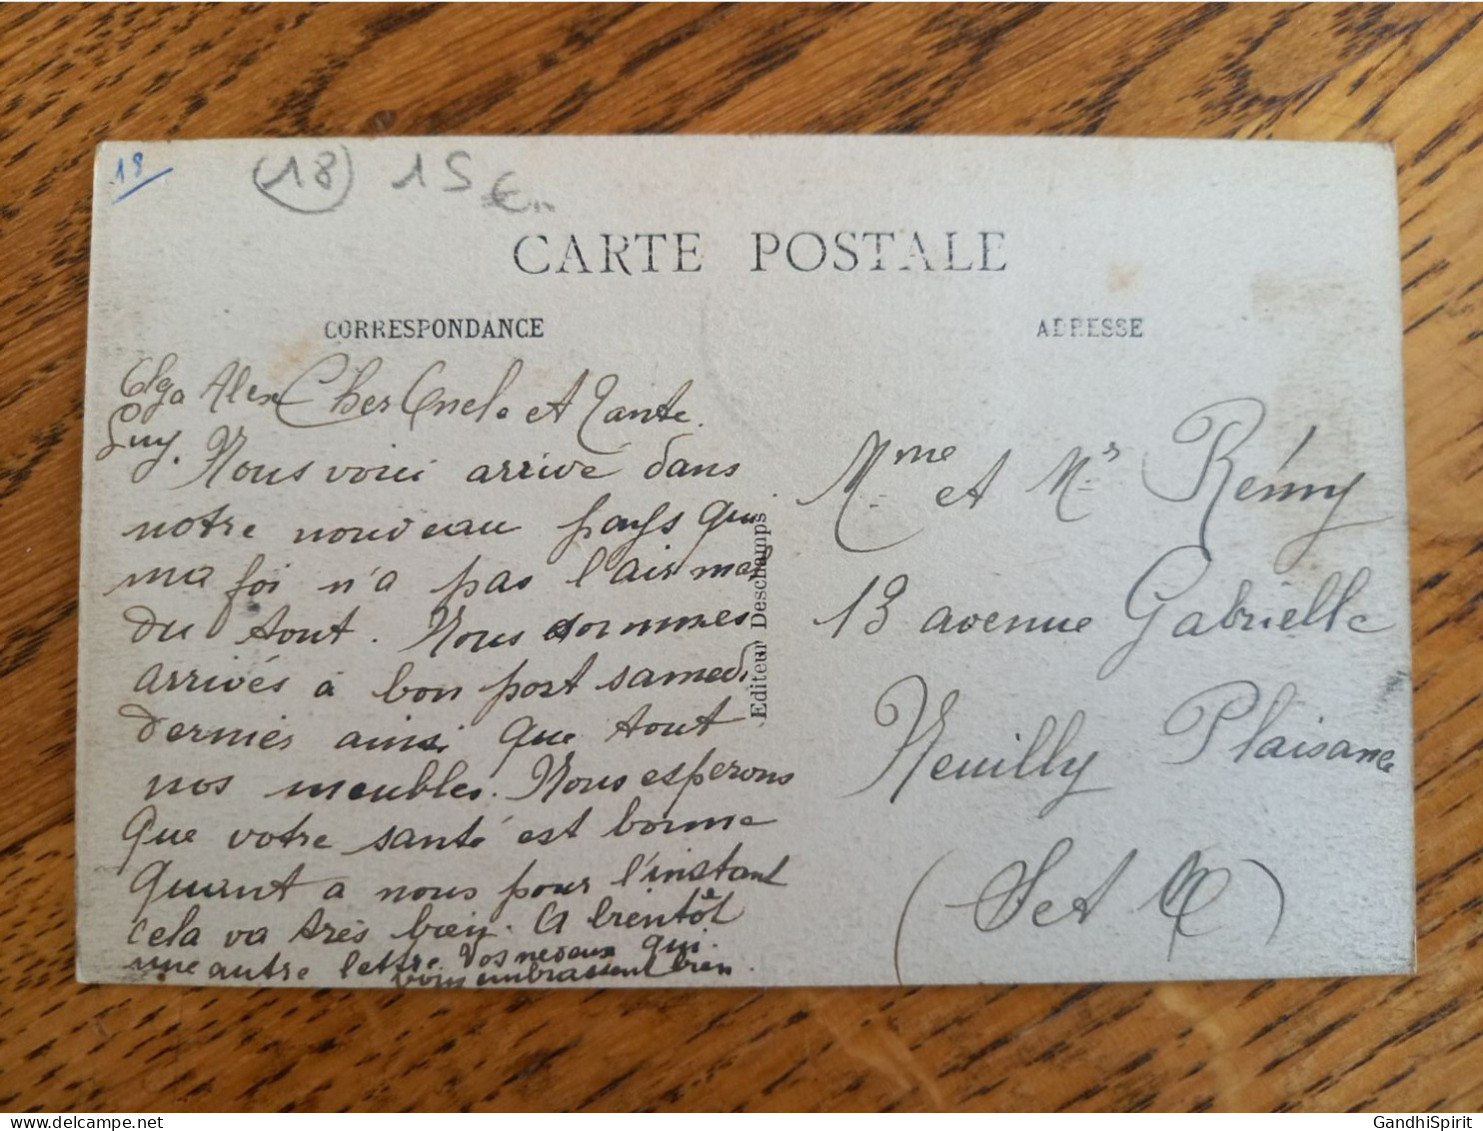 18
(18) 15 €
CARTE POSTALE
CORRESPONDANCE
ADRESSE
Olga Alex
Guy.
Cher Oncle et Tante.
Nous voici arrivé dans
notre nouveau pays qui
ma foi n'a pas l'air mal
du tout. Nous sommes
arrivés à bon port samedi
dernier ainsi que tout
nos meubles. Nous esperons
que votre santé est bonne
quant a nous pour l'instant
cela va très bien. A bientôt
une autre lettre. Vos neveux qui
vous embrassent bien.
Editeur Deschamps
Mme et Mr Rémy
13 avenue Gabrielle
Neuilly Plaisance
(S et O)
GandhiSpirit